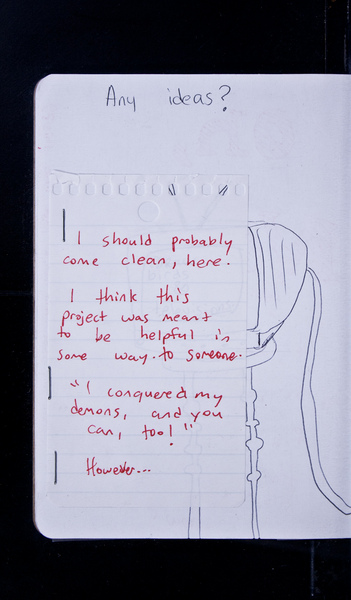 Any ideas?
I should probably
come clean, here.
I think this
project was meant
to be helpful in
some way. to someone.
"I conquered my
demons, and you
can, too!"
However...